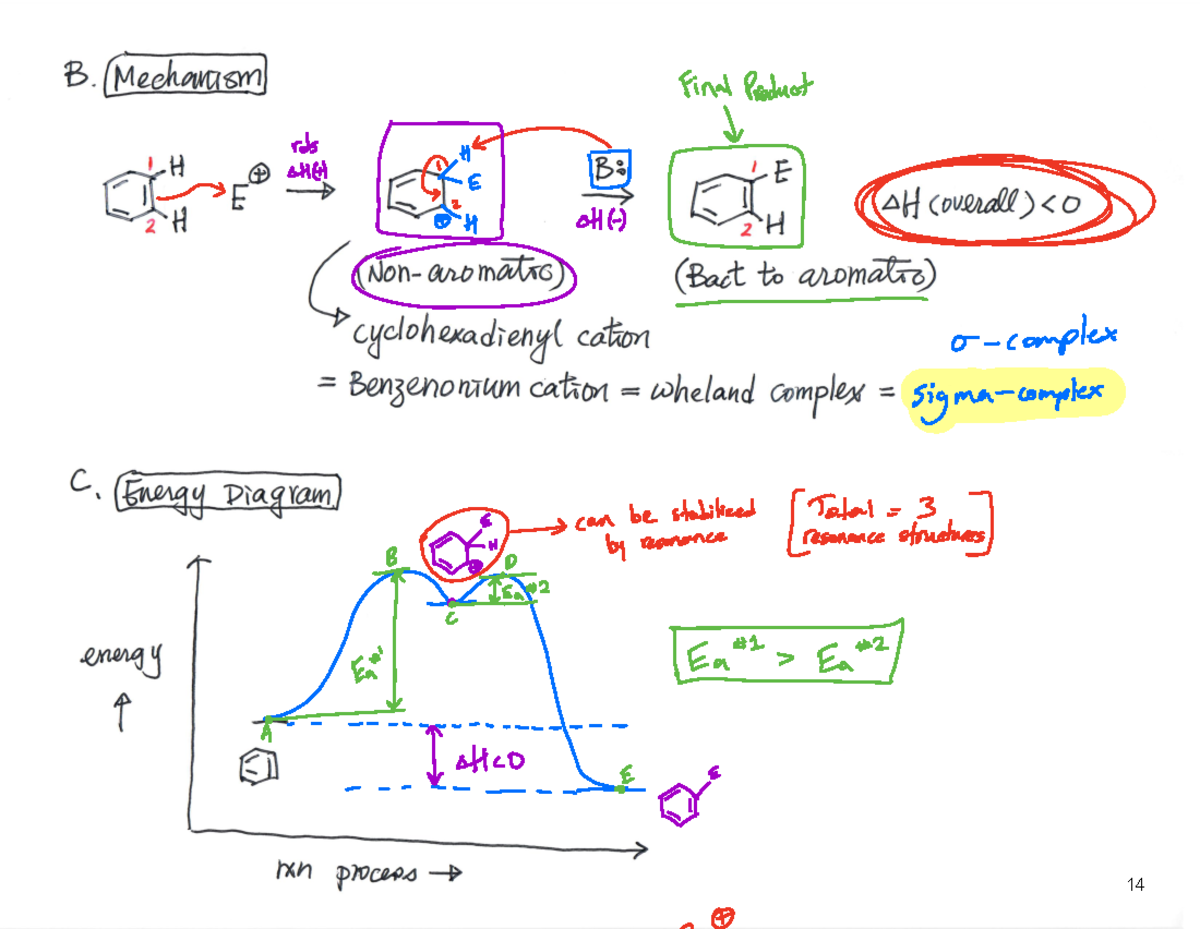 B. Mechanism
Final Product
1 H
2 H
E⊕
rds
ΔH(+)
1 H
E
2
⊕ H
B:
ΔH(-)
1 E
2 H
ΔH (overall) < 0
(Non-aromatic)
(Bact to aromatic)
cyclohexadienyl cation
σ-complex
= Benzenonium cation = wheland complex = sigma-complex
C. Energy Diagram
E
H
⊕
can be stabilized
by resonance
[Total = 3
resonance structures]
B
D
Ea#2
C
energy
Ea#1
Ea#1 > Ea#2
A
ΔH<0
E
E
rxn process →
14
⊕